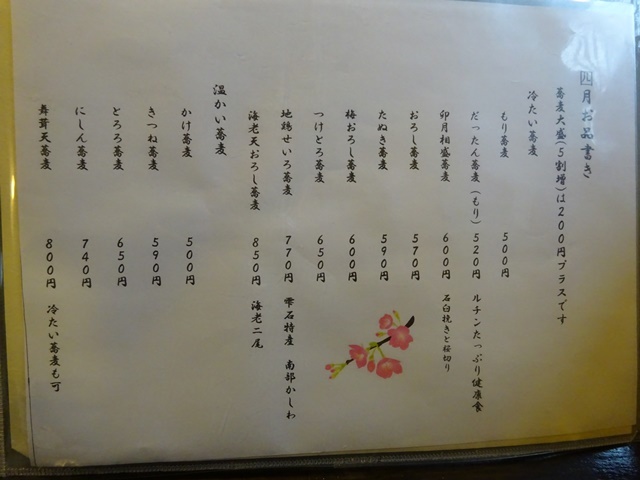 四月お品書き
蕎麦大盛(5割増)は200円プラスです
冷たい蕎麦
もり蕎麦 500円
だったん蕎麦(もり) 520円 ルチンたっぷり健康食
卯月相盛蕎麦 600円 石臼挽きと桜切り
おろし蕎麦 570円
たぬき蕎麦 590円
梅おろし蕎麦 600円
つけとろ蕎麦 650円
地鶏せいろ蕎麦 770円 雫石特産 南部かしわ
海老天おろし蕎麦 850円 海老二尾
温かい蕎麦
かけ蕎麦 500円
きつね蕎麦 590円
とろろ蕎麦 650円
にしん蕎麦 740円
舞茸天蕎麦 800円 冷たい蕎麦も可